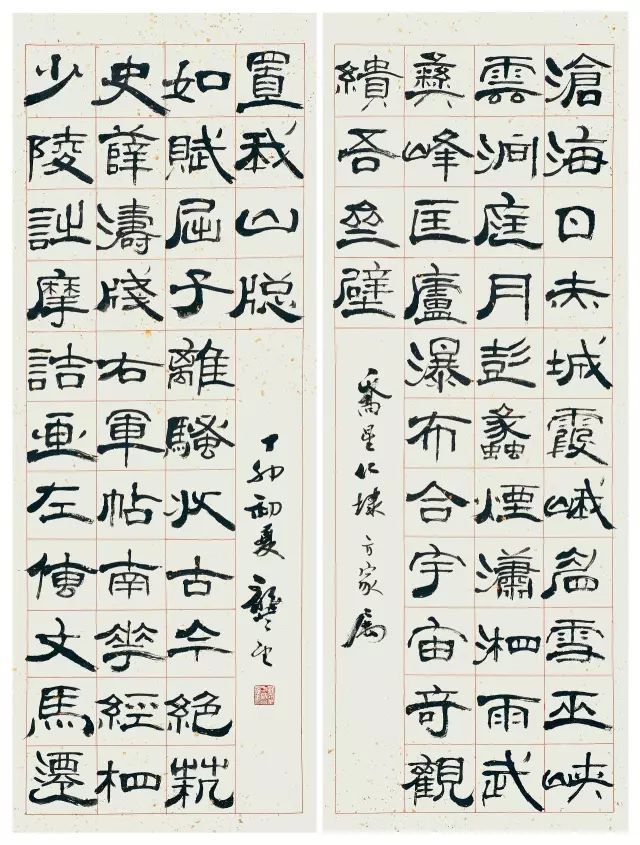 滄海日赤城霞峨眉雪巫峽
雲洞庭月彭蠡煙瀟湘雨武
彝峰匡廬瀑布合宇宙奇觀
繢吾齋壁
喬星仁棣方家屬
少陵詩摩詰画左傳文馬遷
史薛濤牋右軍帖南華經相
如賦屈子離騷收古今絕埶
置我山牕
丁卯初夏龔望